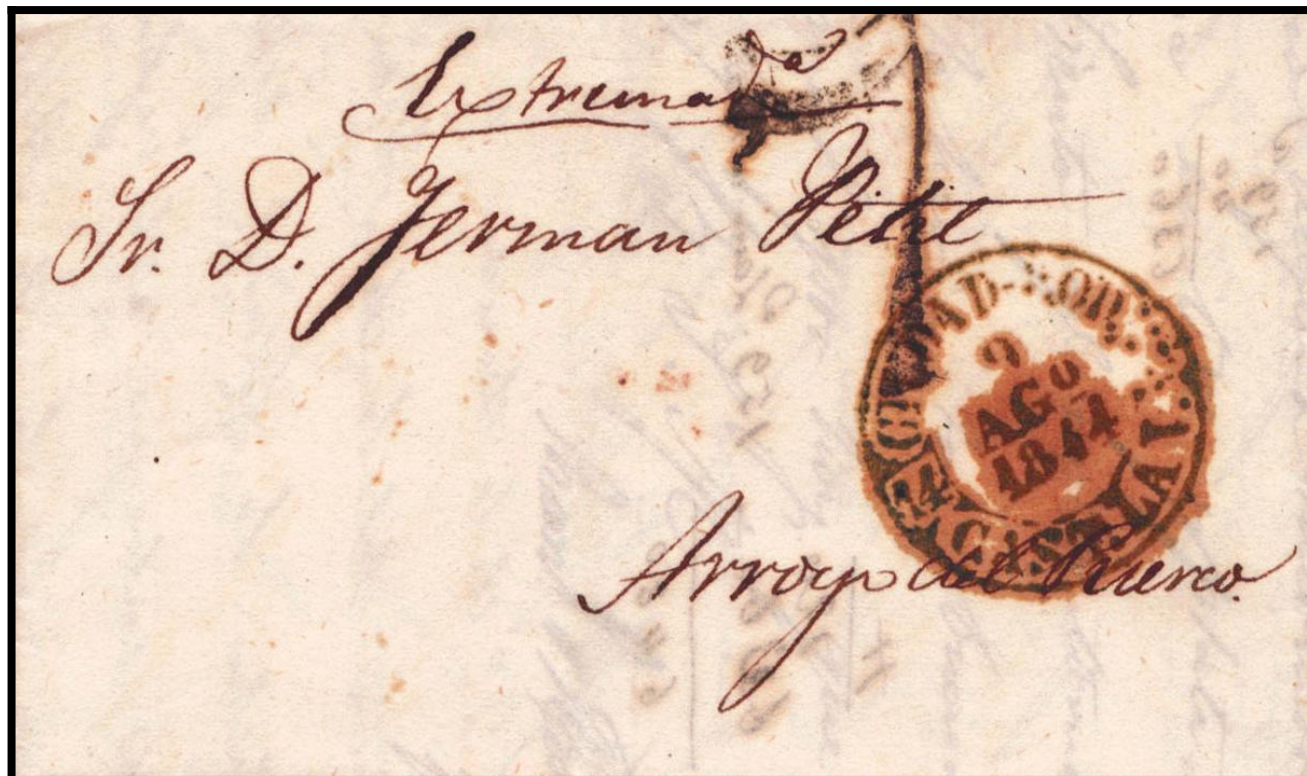 Extremad^a
Sr. D. Jerman Petit
CIUDAD-ROD.
9
AGO
1844
4
CAST. LA V.
Arroyo del Puerco.